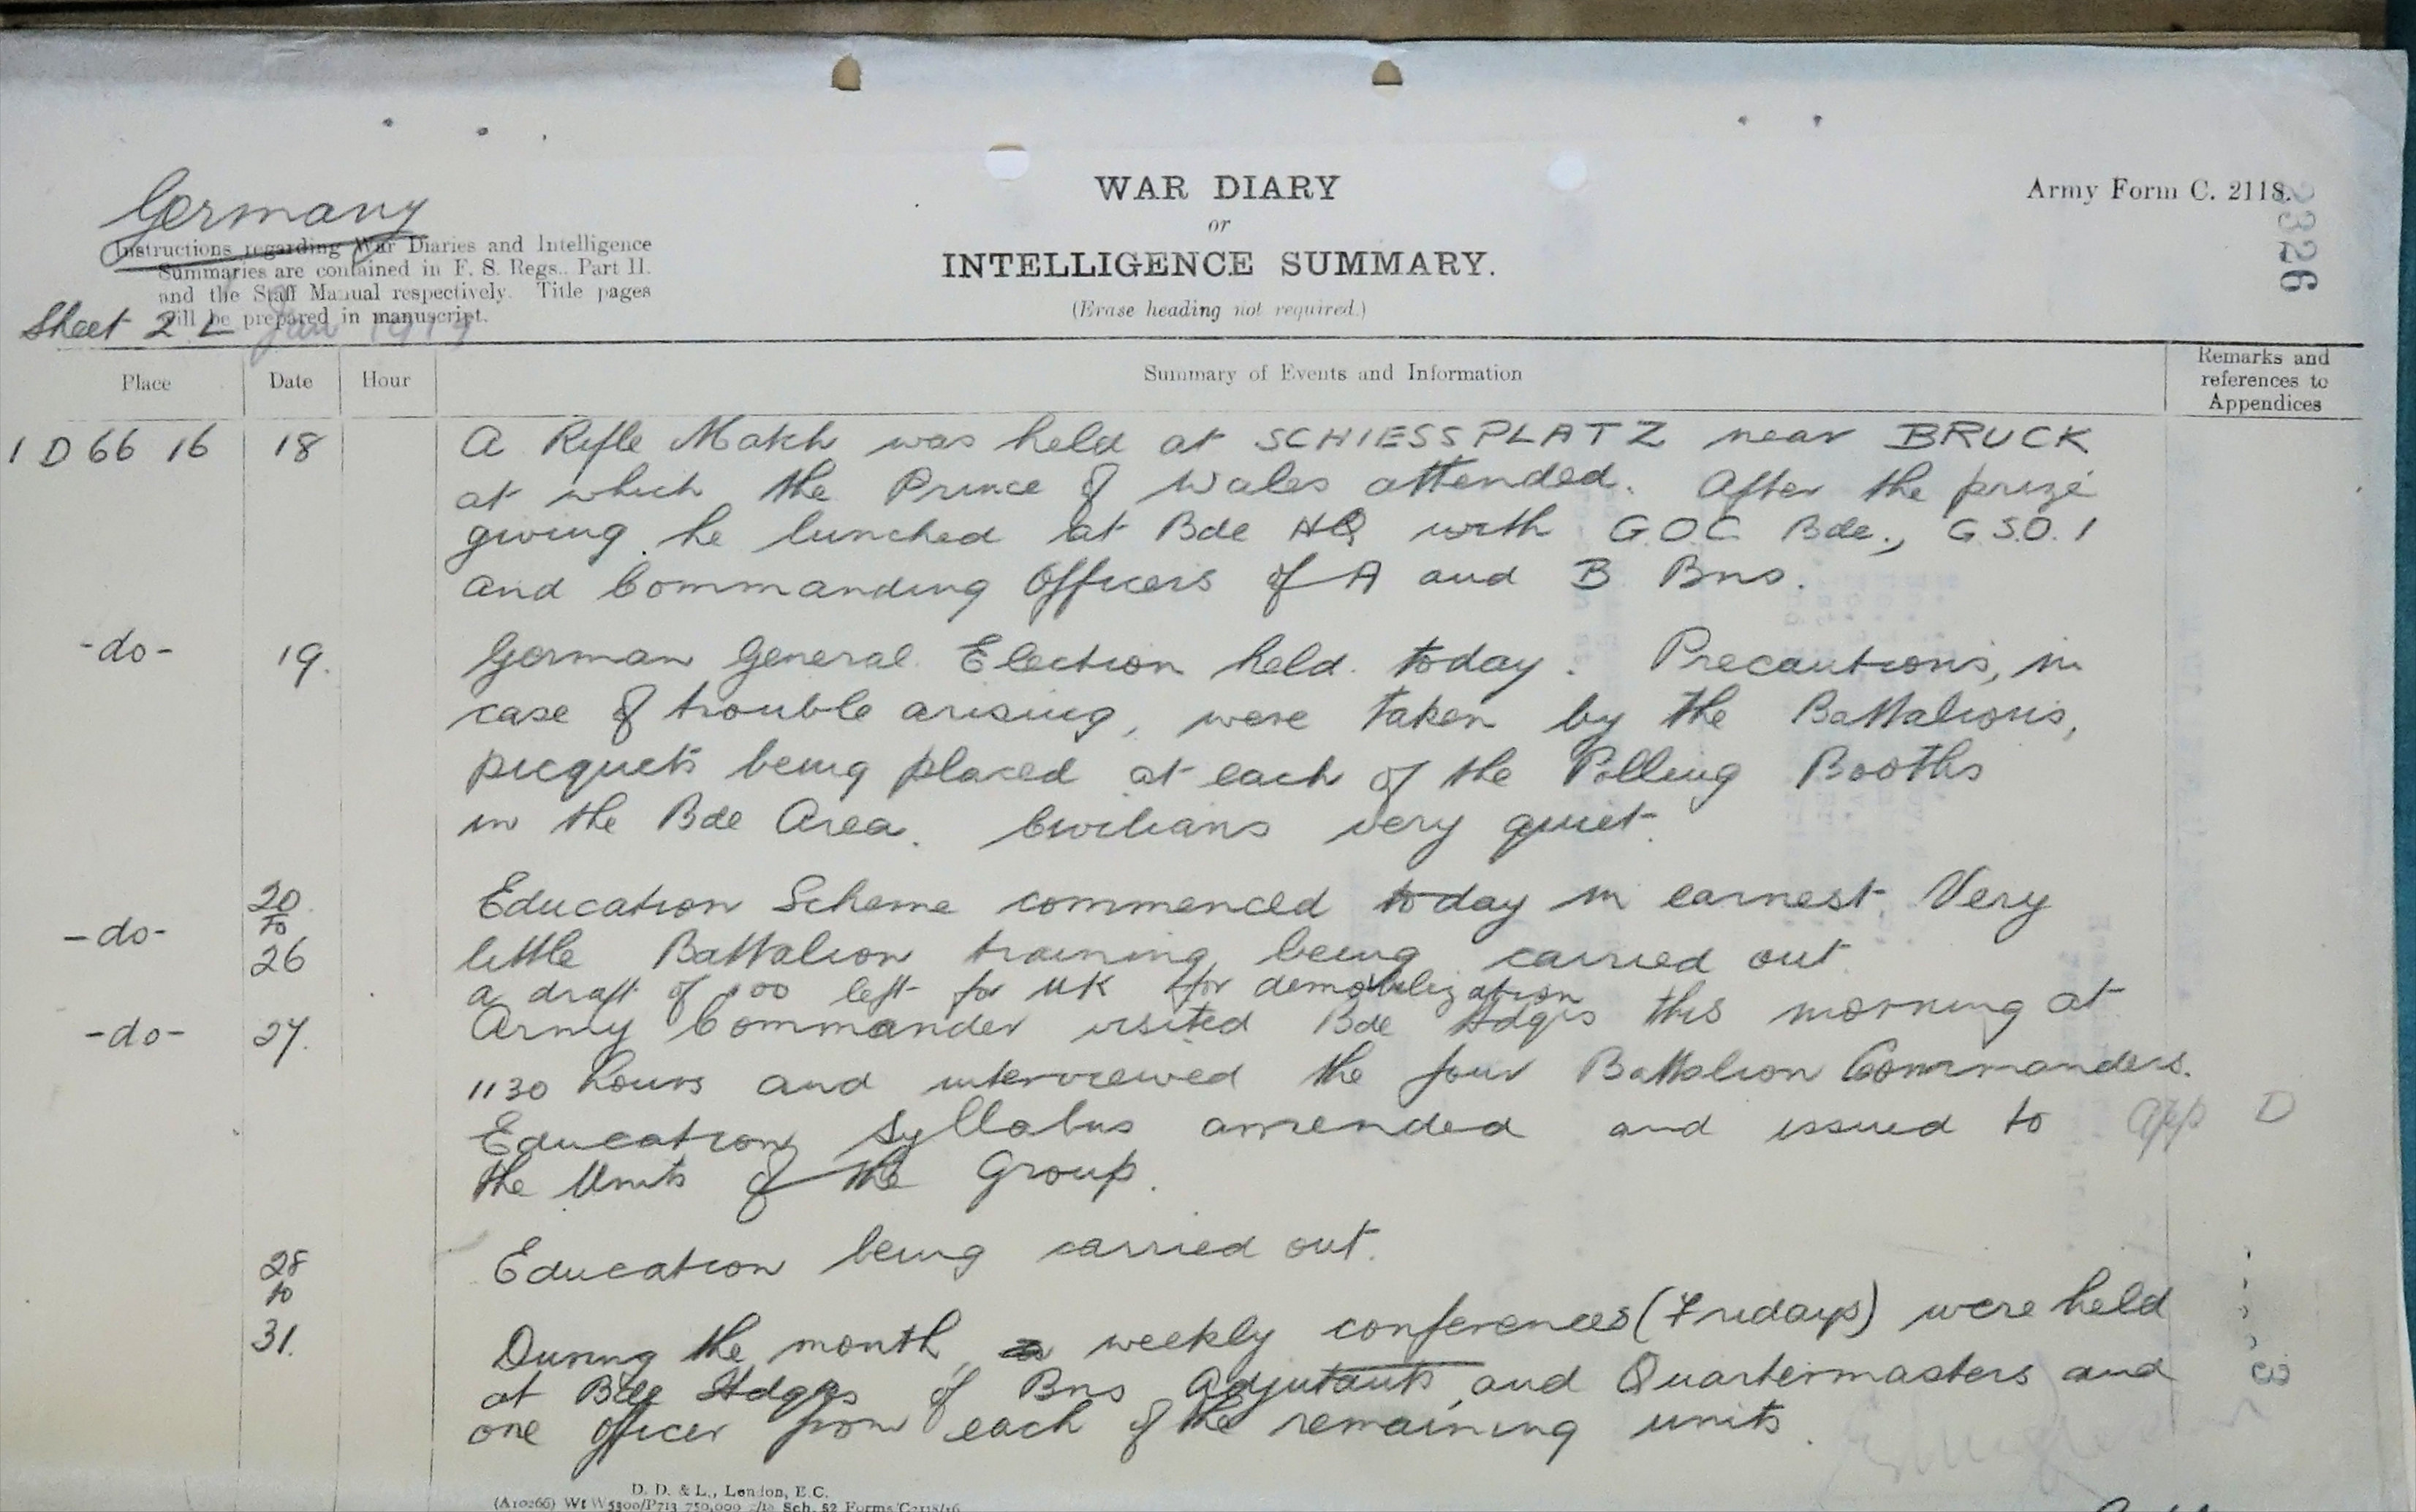 WAR DIARY
or
INTELLIGENCE SUMMARY.
(Erase heading not required.)
Army Form C. 2118.
2326
Germany
Instructions regarding War Diaries and Intelligence
Summaries are contained in F. S. Regs., Part II.
and the Staff Manual respectively. Title pages
will be prepared in manuscript.
Sheet 2 Jan 1919
Place Date Hour Summary of Events and Information Remarks and
references to
Appendices
1 D 66 16 18 A Rifle Match was held at SCHIESSPLATZ near BRUCK
at which the Prince of Wales attended. After the prize
giving he lunched at Bde HQ with G.O.C. Bde., G.S.O. 1
and Commanding Officers of A and B Bns.
-do- 19. German General Election held today. Precautions, in
case of trouble arising, were taken by the Battalions,
picquets being placed at each of the Polling Booths
in the Bde Area. Civilians very quiet.
-do- 20 to 26 Education Scheme commenced today in earnest. Very
little Battalion training being carried out
a draft of 100 left for UK for demobilization
-do- 27. Army Commander visited Bde Hdqrs this morning at
1130 hours and interviewed the four Battalion Commanders.
Education Syllabus amended and issued to App D
the Units of the Group.
28 to 31. Education being carried out.
During the month, weekly conferences (Fridays) were held
at Bde Hdqrs of Bns Adjutants and Quartermasters and
one officer from each of the remaining units.
D. D. & L., London, E.C.